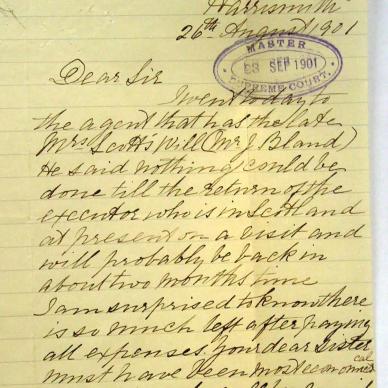 Harrismith
26th August 1901
MASTER
SEP 1901
SUPREME COURT.
Dear Sir
I went today to
the agent that has the late
Mrs Scotts Will (Mr J. Bland)
He said nothing could be
done till the return of the
executor who is in Scotland
at present on a visit and
will probably be back in
about two months time
I am surprised to know there
is so much left after paying
all expenses. Your dear Sister
must have been most economical